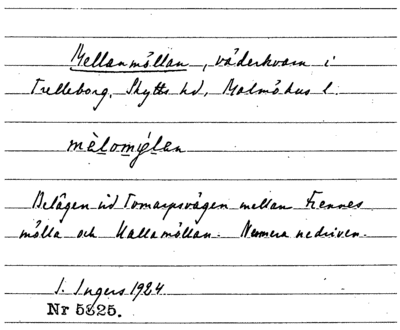 Mellanmöllan, väderkvarn i
Trelleborg, Skytts hd, Malmöhus l.
mèlomýlan
Belägen vid Tomarpsvägen mellan Fiennes
mölla och Kallamöllan. Numera nedriven.
I. Ingers 1924
Nr 5825.